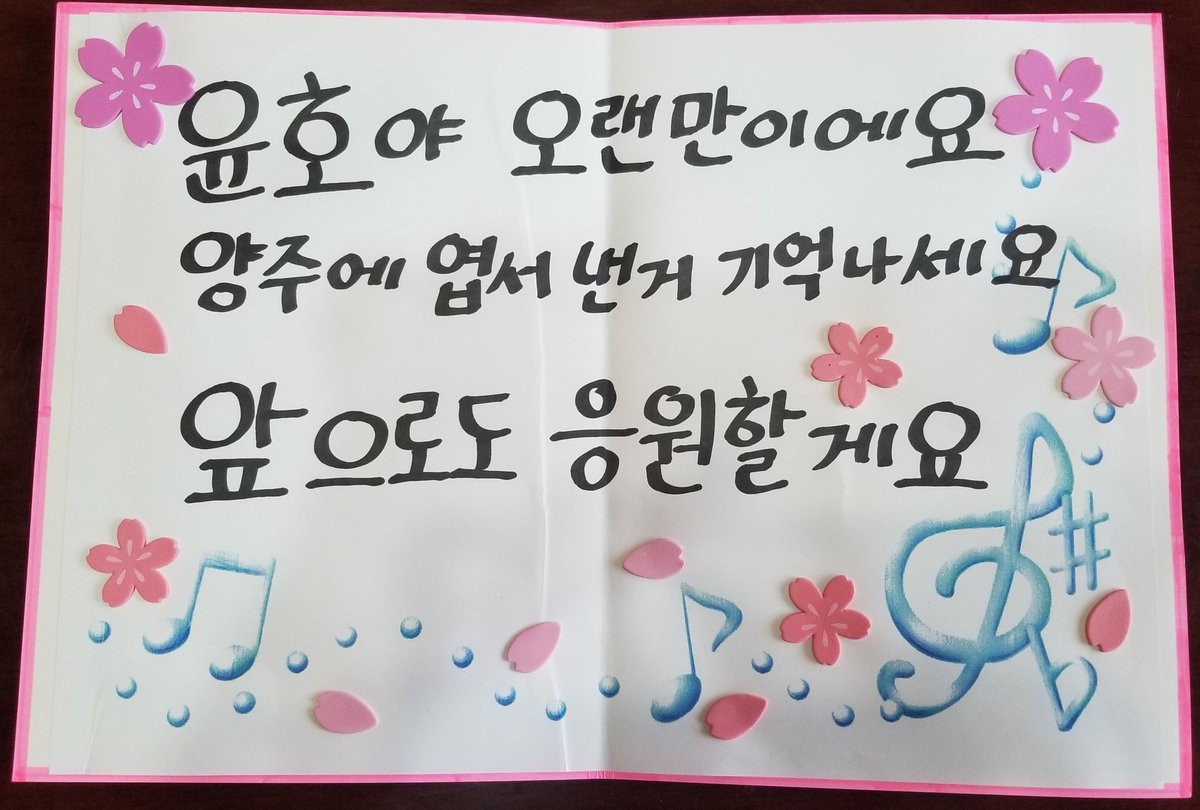 윤호야 오랜만이에요
양주에 엽서 낸거 기억나세요
앞으로도 응원할게요